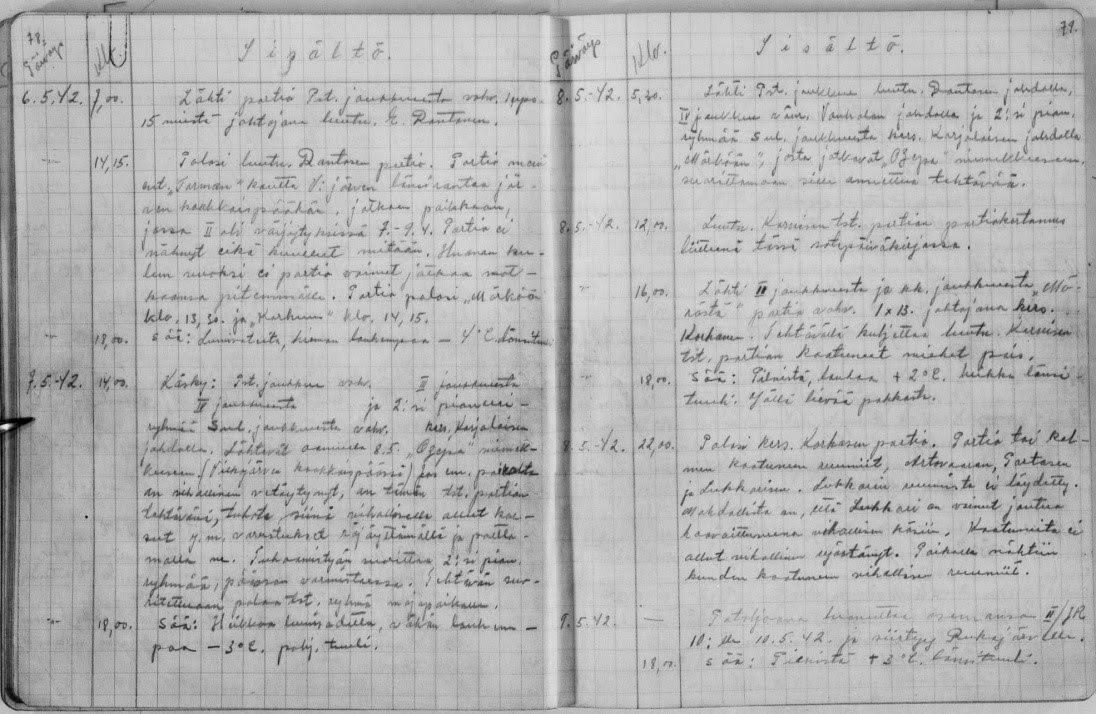 78.
Päiväys
Klo.
Sisältö.
6.5.42. 7,00. Lähti partio Pst. joukkueesta vahv.
15 miestä johtajana luutn. E. Rantanen.
-"- 14,15. Palasi luutn. Rantasen partio. Partio
"Tarman" kautta V: järven länsirantaa jär-
ven koukkaispäähän, jatkaen paikkaan,
jossa II oli väijytyksissä 7.-9.4. Partio ei
nähnyt eikä kuullut mitään. Huonon
kelin vuoksi ei partio voinut jatkaa mat-
kaansa pitemmälle. Partio palasi "Mörköön"
klo. 13,30. ja "Korkeen" klo. 14,15.
-"- 18,00. Sää: Lumisateista, hieman tuulee - 4°C.
7.5.-42. 14,00. Käsky: Pst. joukkue vahv. II joukkueesta
IV joukkueesta ja 2:si pioneeri-
ryhmää joukkueesta vahv. kers. Karjalaisen
johdolla. Lähtevät aamulla 8.5. "Ozepa" nimek-
keeseen. jos em. paikalta
on vihollinen vetäytynyt, on tämän tst. partion
tehtävänä, tuhota siinä vihollisella olleet
y.m. varustukset räjäyttämällä ja poltta-
malla ne. Tuhoamistyön suorittaa 2:si pion.
ryhmää, pääosan varmistaessa. Tehtävän suo-
ritettuaan palaa tst. ryhmä majapaikkaan.
-"- 18,00. Sää: Heikkoa lumisadetta,
paa - 3°C. pohj. tuuli.
79.
Päiväys
Klo.
Sisältö.
8.5.-42. 5,30. Lähti Pst. joukkue luutn. Rantasen johdolla,
IV joukkue johdolla ja 2:si pion.
ryhmää joukkueesta kers. Karjalaisen johdolla
"Mörköön", josta jatkavat "Ozepa"
suorittamaan sille annettua tehtävää.
8.5.-42. 12,00. Luutn. Karnisen tst. partion partiokertomus
liitteenä tässä sotapäiväkirjassa.
-"- 16,00. Lähti III joukkueesta ja kk. joukkueesta "Mö-
röstä" partio vahv. 1x13. johtajana kers.
Korhonen. Tehtävällä kuljettaa luutn. Karnisen
tst. partion kaatuneet miehet pois.
18,00. Sää: Pilvistä, tuulee + 2°C. heikko länsi-
tuuli. Yöllä lievää pakkasta.
8.5.-42. 22,00. Palasi kers. Korhosen partio. Partio toi kol-
men kaatuneen ruumiit, Artovaaran, Partasen
ja Lukkarisen. Lukkarin ruumista ei löydetty.
Mahdollista on, että Lukkari on voinut joutua
haavoittuneena vihollisen käsiin. Kaatuneita ei
ollut vihollinen ryöstänyt. Paikalla nähtiin
kuuden kaatuneen vihollisen ruumiit.
9.5.42. — Pataljoona luovuttaa asemansa II/JR
10:lle 10.5.42. ja siirtyy Rukajärvelle.
18,00. Sää: Pilvistä + 3°C. länsituuli.